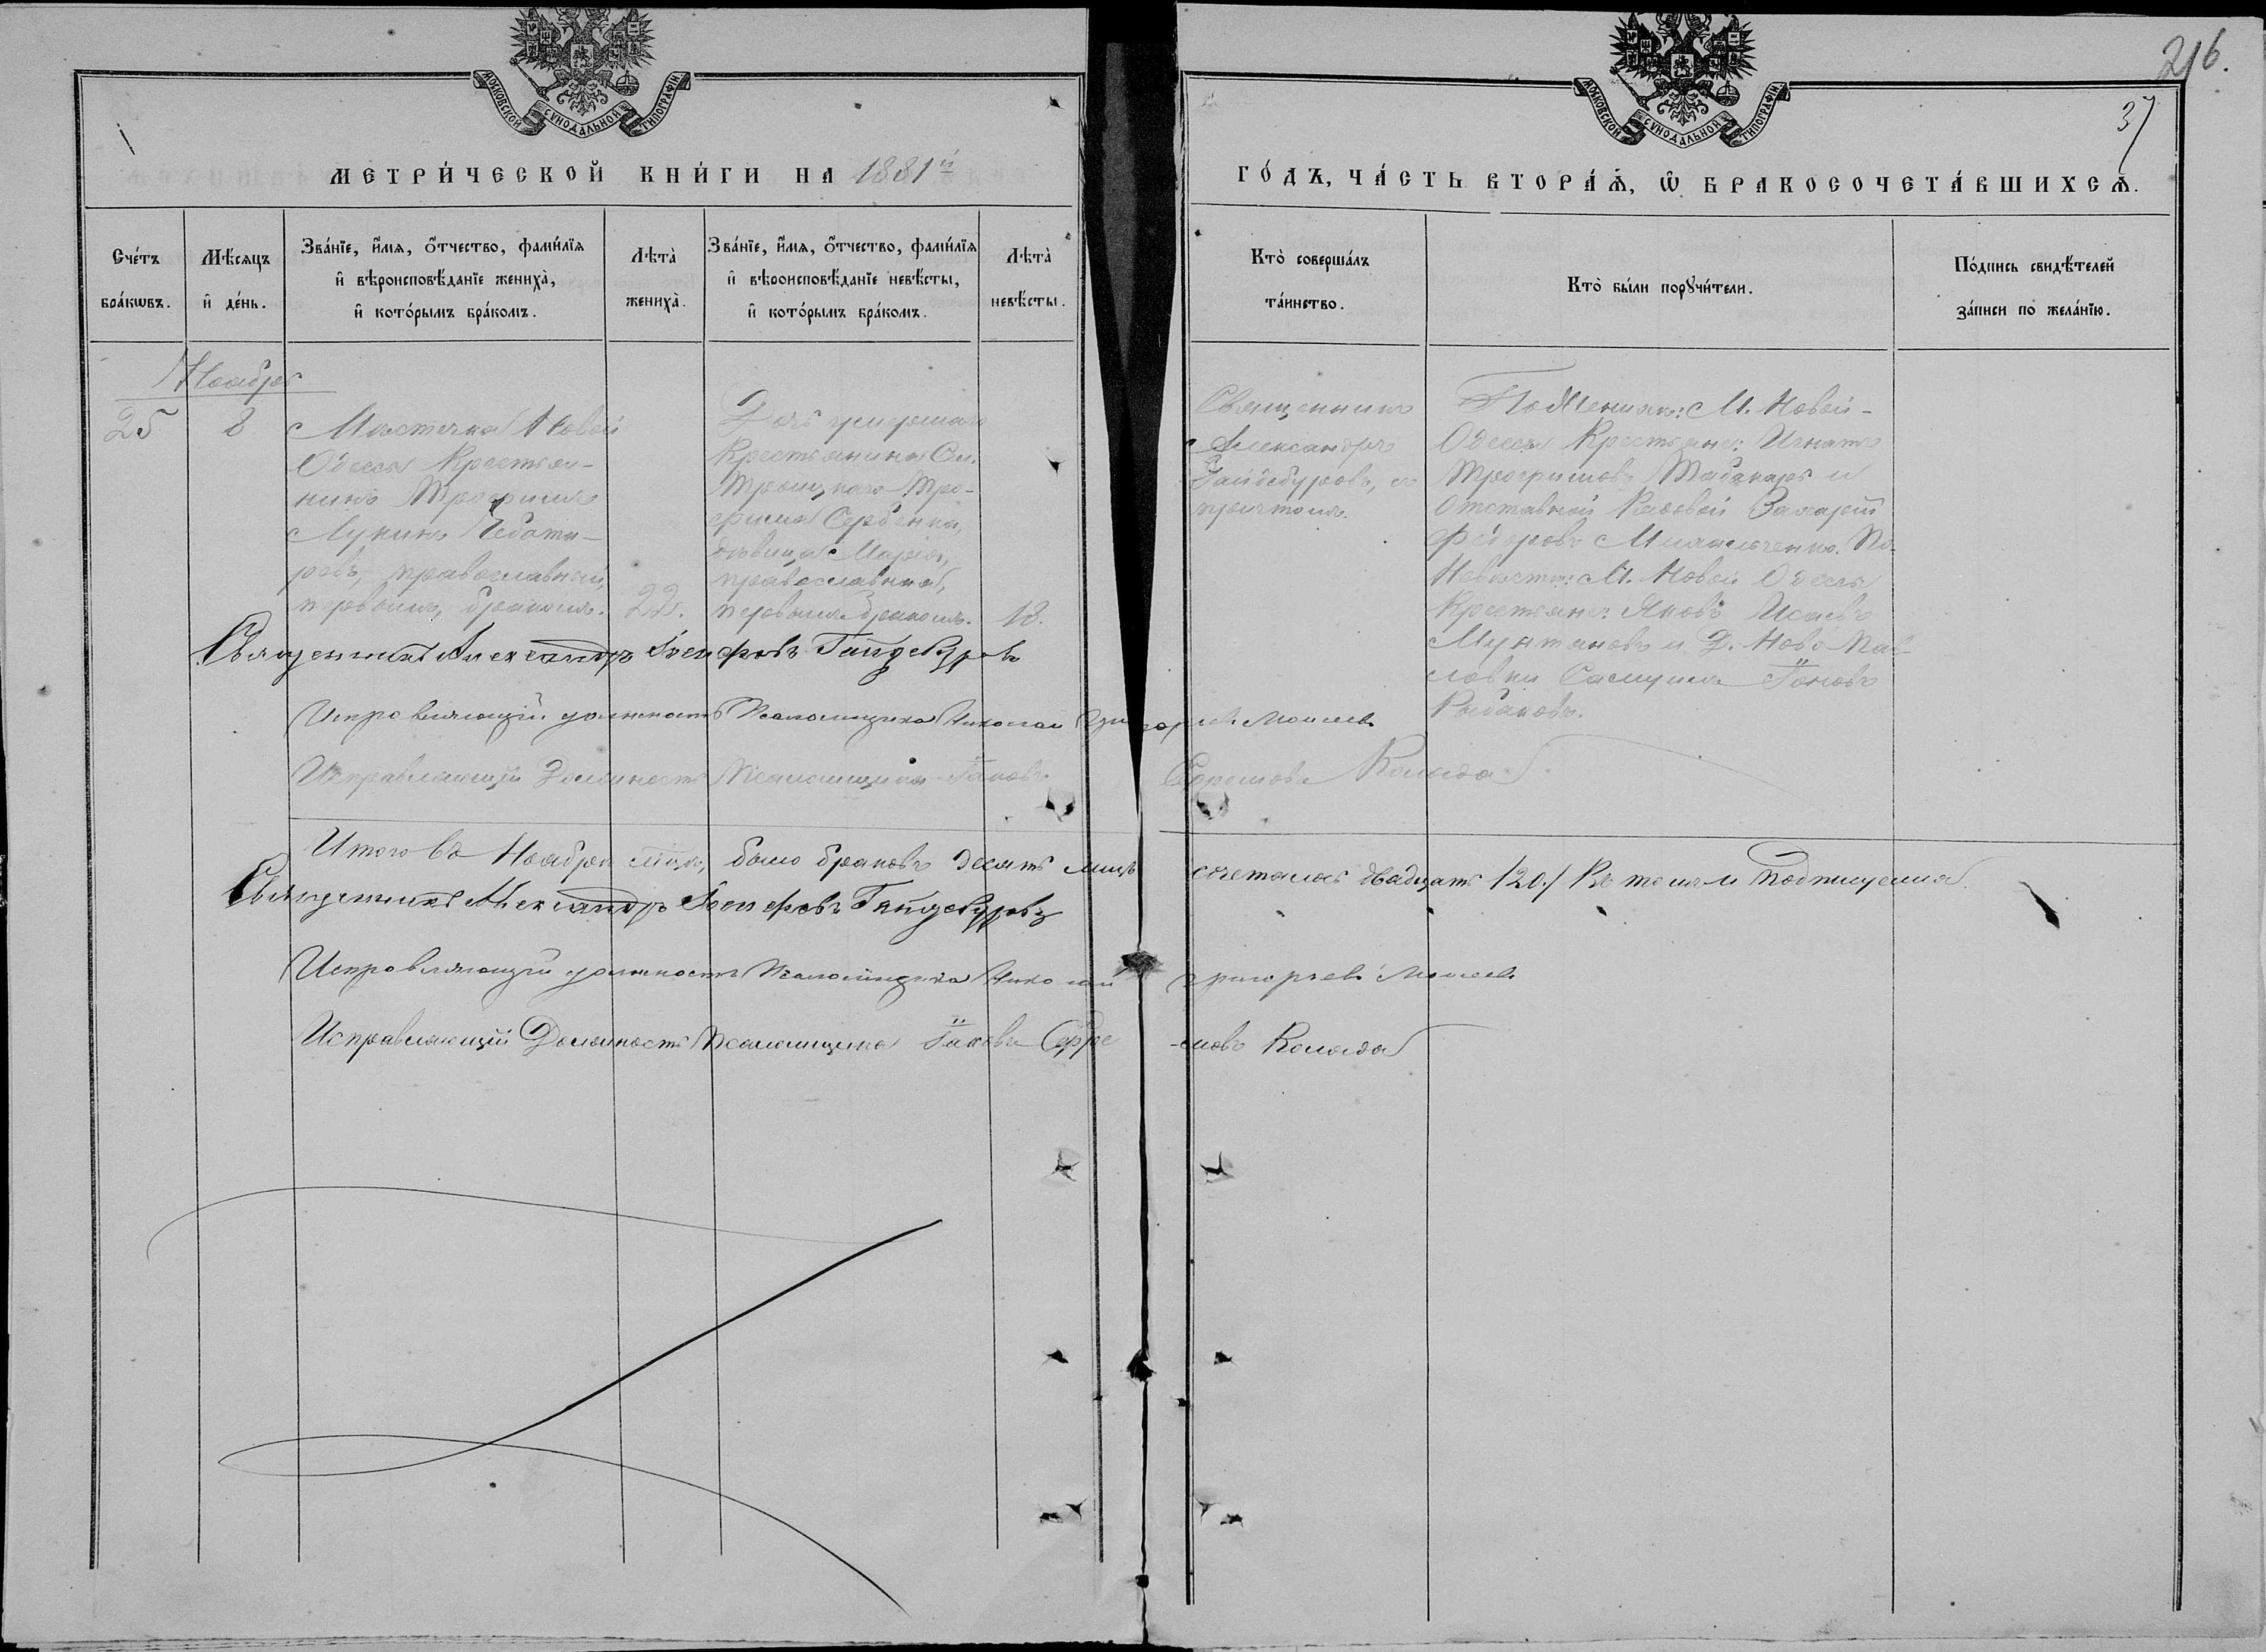 216.
37
МОСКОВСКОЙ СУНОДАЛЬНОЙ ТИПОГРАФІИ
МОСКОВСКОЙ СУНОДАЛЬНОЙ ТИПОГРАФІИ
МЕТРИ́ЧЕСКОЙ КНИ́ГИ НА 1881й
ГО́ДЪ, ЧА́СТЬ ВТОРА́Ѧ, Ѡ БРАКОСОЧЕТА́ВШИХСѦ.
Сче́тъ
бра́кѡвъ.
Мѣ́сяцъ
и҆ де́нь.
Зва́нїе, и҆́мя, ѻ҆́тчество, фами́лїя
и҆ вѣроисповѣ́данїе жениха̀,
и҆ кото́рымъ бра́комъ.
Лѣта̀
жениха̀.
Зва́нїе, и҆́мя, ѻ҆́тчество, фами́лїя
и҆ вѣроисповѣ́данїе невѣ́сты,
и҆ кото́рымъ бра́комъ.
Лѣта̀
невѣ́сты.
Кто̀ соверша́лъ
та́инство.
Кто̀ бы́ли порꙋчи́тели.
По́дпись свидѣ́телей
за́писи по жела́нїю.
Ноября
25
8
Мѣстечка Новой
Одессы Крестья-
нинъ Трофимъ
Лукинъ Чебота-
ревъ, православный,
первымъ бракомъ.
22.
Дочь умершаго
Крестьянина Си.
Троицкаго Тро-
фима Сербенка,
дѣвица Марія,
православная,
первымъ бракомъ.
18.
Священникъ
Александръ
Гайдебуровъ, съ
причтомъ.
По Женихѣ: М. Новой-
Одессы Крестьяне: Игнатъ
Трофимовъ Табакарь и
Отставной Рядовой Захарій
Федоровъ Михальченко. По
Невѣстѣ: М. Новой Одессы
Крестьяне: Яковъ Исаевъ
Мунтяновъ и Д. Ново Пав-
ловки Самуилъ Іаковъ
Рыбаковъ.
Священникъ Александръ Іосифовъ Гайдебуровъ
Исправляющій должность Псаломщика Николай Григорьевъ Моисеевъ
Исправляющій Должность Псаломщика Іаковъ Ефремовъ Коляда
Итого въ Ноябрѣ мцѣ, было браковъ десять лицъ сочеталось двадцать /20./ Въ томъ и подпишемся
Священникъ Александръ Іосифовъ Гайдебуровъ
Исправляющій должность Псаломщика Николай Григорьевъ Моисеевъ
Исправляющій Должность Псаломщика Іаковъ Ефре-мовъ Коляда